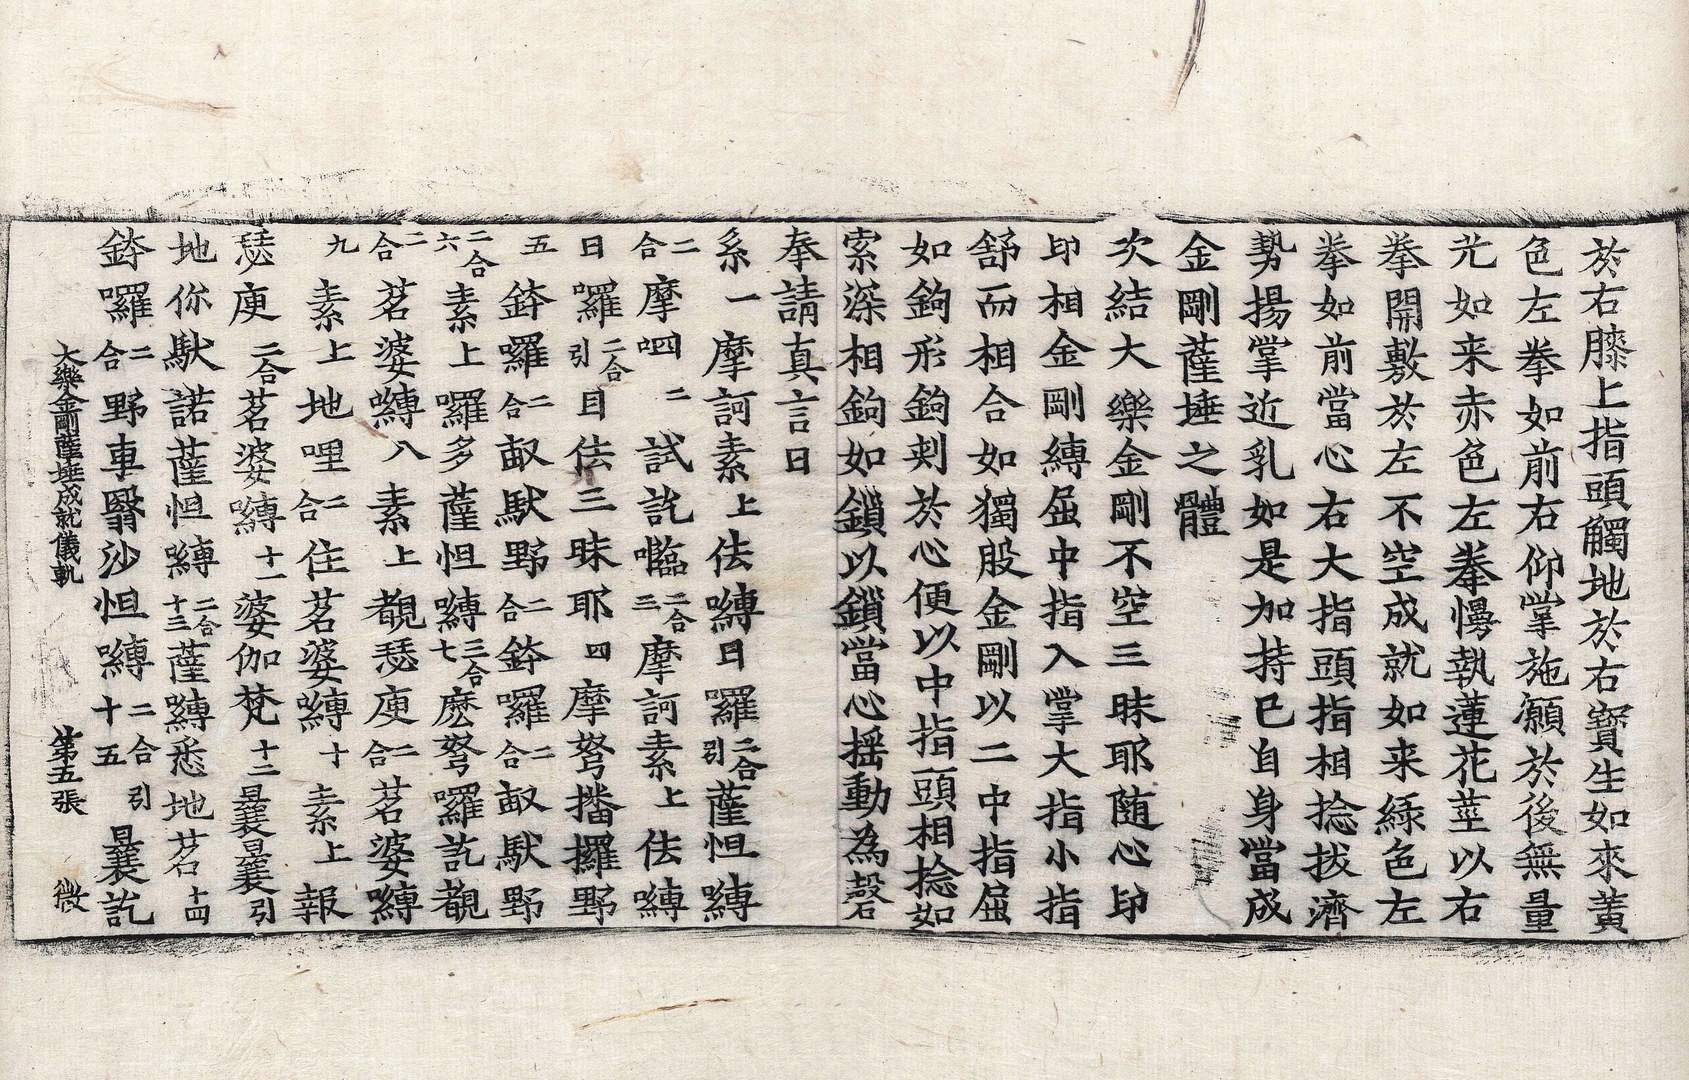 於右膝上指頭觸地於右寶生如來黃
色左拳如前右仰掌施願於後無量
光如来赤色左拳慢執蓮花莖以右
拳開敷於左不空成就如来綠色左
拳如前當心右大指頭指相捻拔濟
勢揚掌近乳如是加持已自身當成
金剛薩埵之體
次結大樂金剛不空三昧耶随心印
印相金剛縛屈中指入掌大指小指
舒而相合如獨股金剛以二中指屈
如鉤形鉤刺於心便以中指頭相捻如
索深相鉤如鎖以鎖當心摇動為磬
奉請真言曰
系一摩訶素上佉嚩日囉二合引薩怛嚩
二合摩呬四二試訖囕二合三摩訶素上佉嚩
日囉二合引目佉三昧耶四摩努播攞野
五鉢囉二合㕹馱野二合鉢囉二合㕹馱野
二合六素上囉多薩怛嚩三合七麽努囉訖覩
二合茗婆嚩八素上覩瑟㢌二合茗婆嚩
九素上地哩二合住茗婆嚩十素上報
瑟㢌二合茗婆嚩十一婆伽梵十二曩曩引
地你馱諾薩怛嚩二合十三薩嚩悉地茗十四
鉢囉二合野車翳沙怛嚩二合引十五曩訖
大樂金剛薩埵成就儀軌 第五張 微